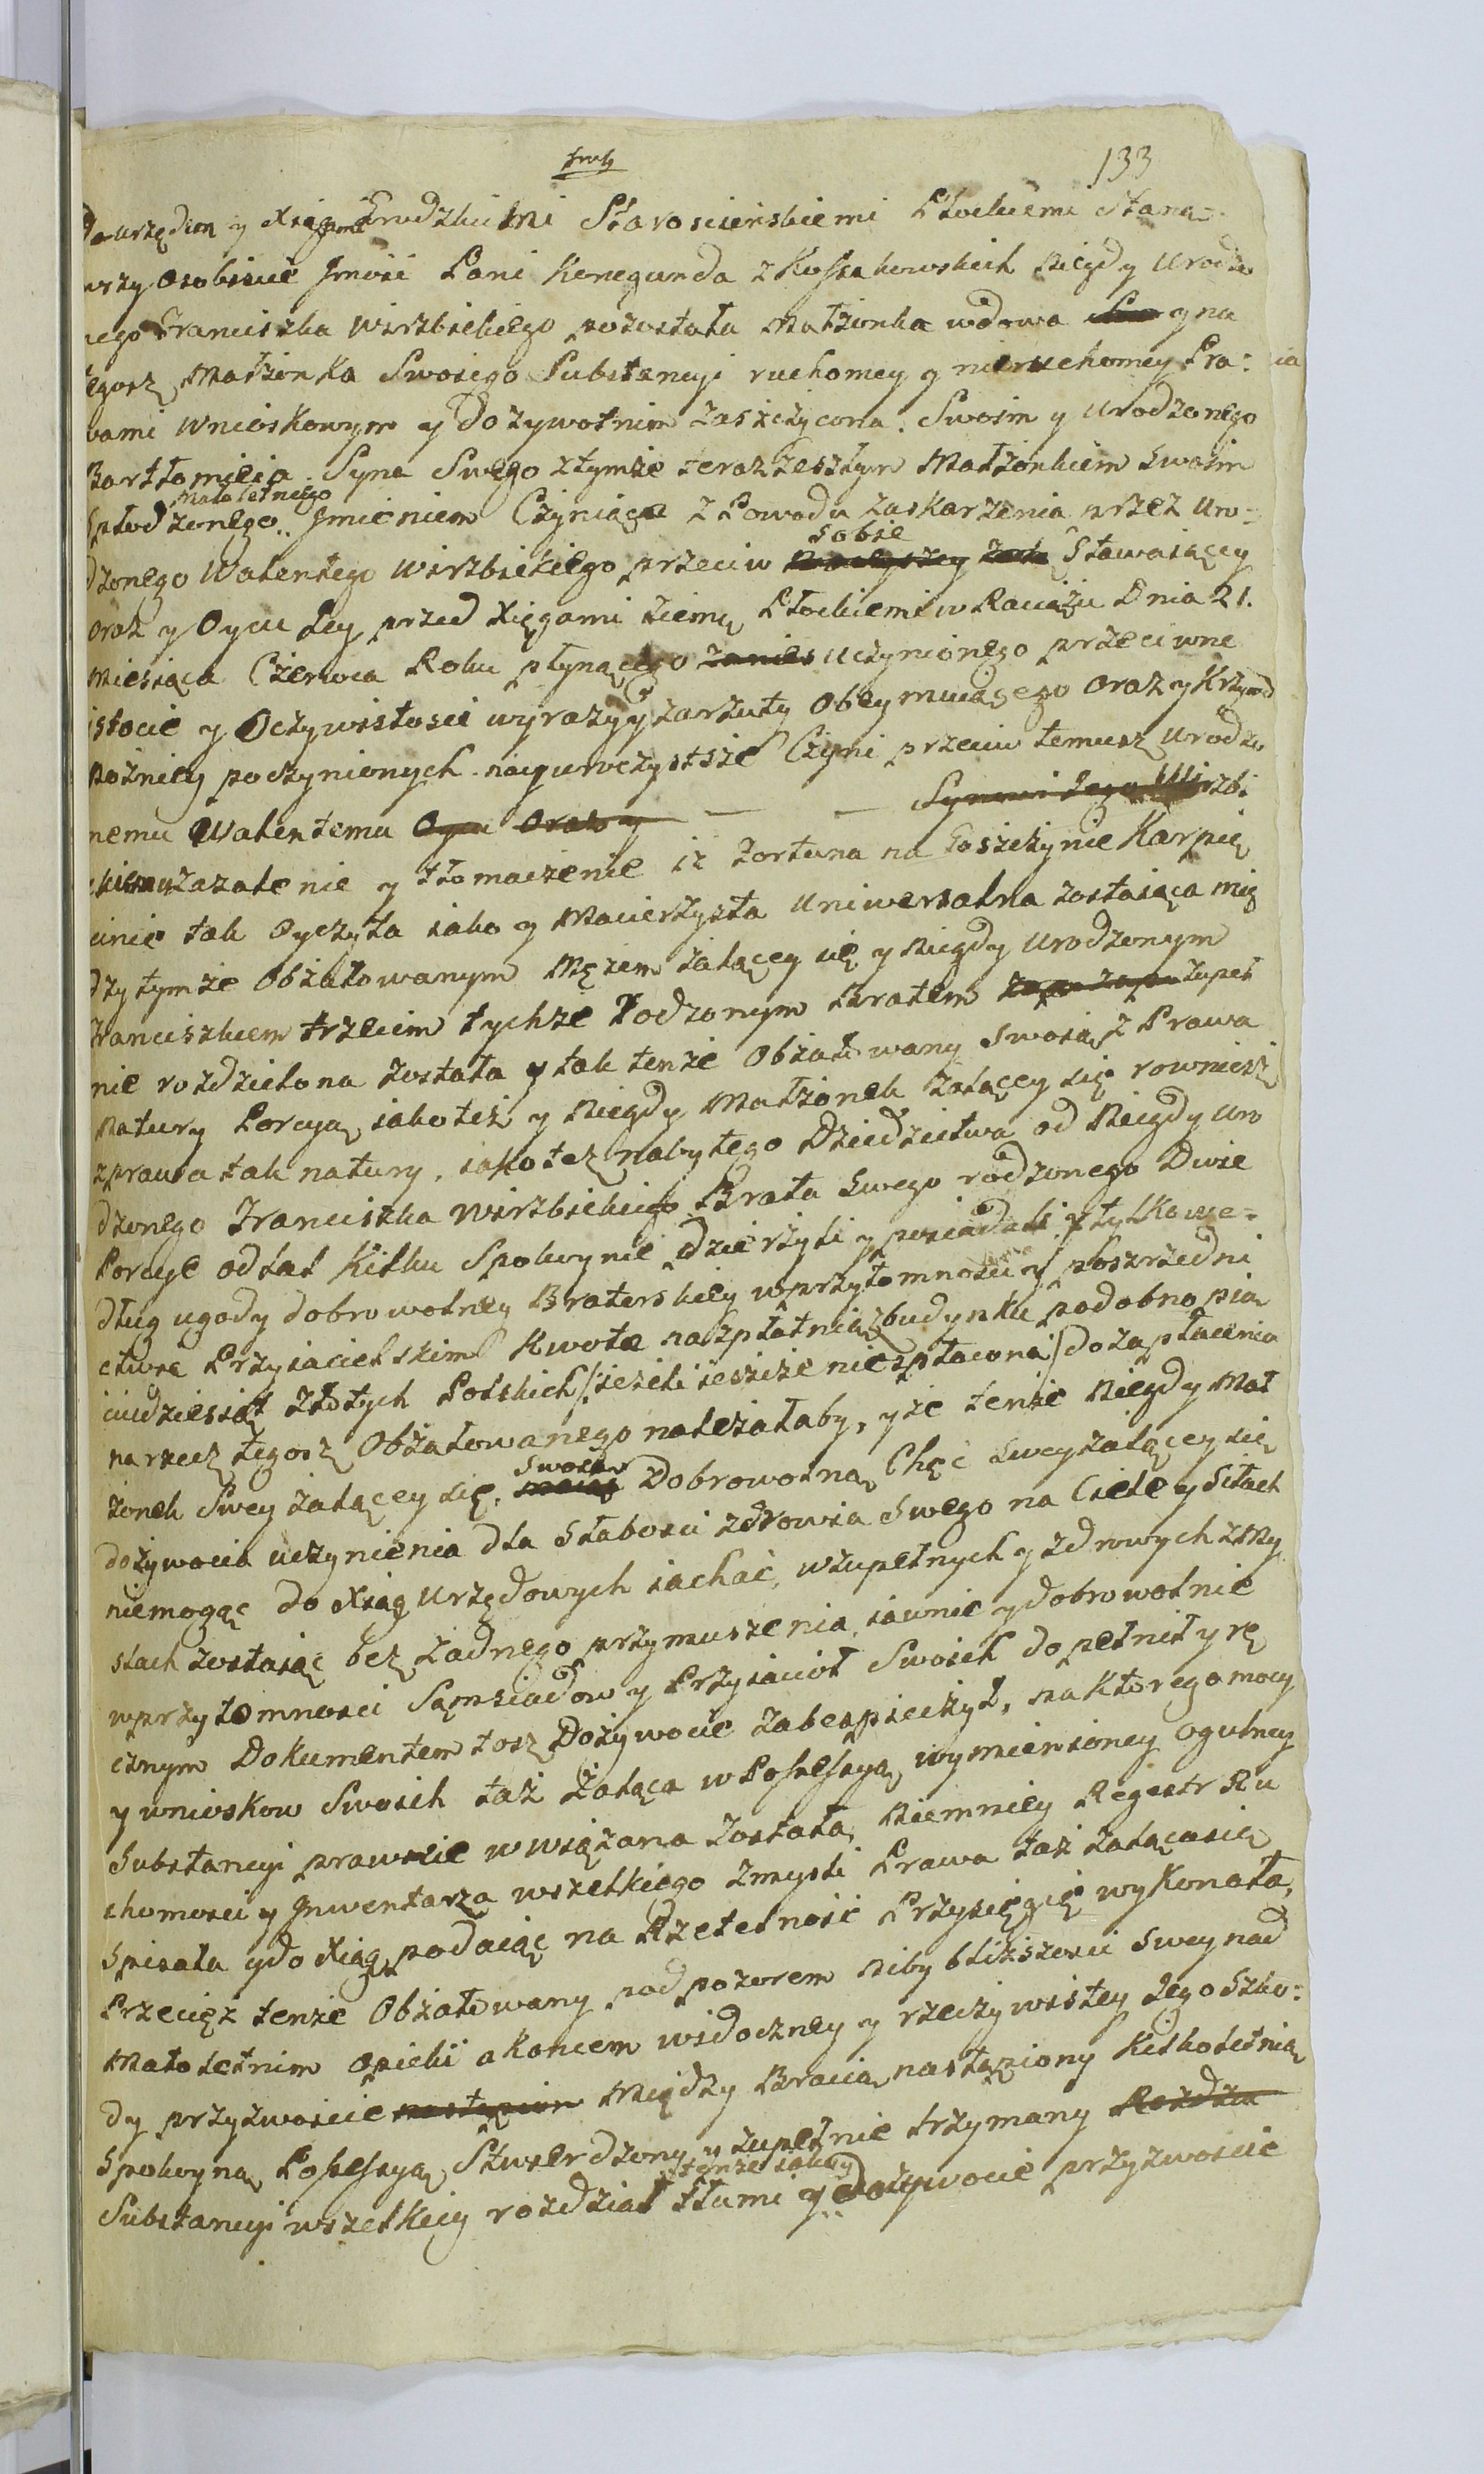 133
Do urzędem y Xięgami Grodzkiemi Staroscienskiemi Płockiemi Stana-
wszy osobiscie Jmość Pani Kunegunda z Kossakowskich niegdy Urodzo
nego Franciszka Wirzbickiego pozostała Małżonka wdowa y na
tegosz Małżonka Swoiego Substancyi ruchomey y nieruchomey Pra-
wami wnioskowym y dozywotnim zaszczycona. Swoim y Urodzonego
Bartłomieia Syna Swego z tymże teraz zeszłym Małżonkiem swoim
Spłodzonego małoletniego Jmieniem Czyniąca z Powodu zaskarzenia przez Uro-
dzonego Walentego Wirzbickiego przeciw sobie Stawaiącey
oraz y Oycu Jey przed Xięgami ziemą Płockiemi w Raciążu Dnia 21.
Miesiąca Czerwca Roku płynącego uczynionego przeciwne
istocie y Oczywistosci wyrazy y zarzuty obeymuiącego oraz y Krzywd
pożniey poczynionych nayuroczystsze Czyni przeciw temusz Urodzo
nemu Walentemu Oycu oraz y — — Synowi Jego Wirzbi
ckiemu zażalenie y tłomaczenie iz Fortuna na Goszczynie Karpię
cinie tak Oyczysta iako y Macierzysta Uniwersalna zostaiąca mię
dzy tymże Obżałowanym Mężem żalącey się y niegdy Urodzonym
Franciszkiem trzecim tychże Rodzonym Bratem zupeł
nie rozdzielona została y tak tenże Obżałowany swoią z Prawa
Natury Porcyą iakoteż y niegdy Małżonek żalącey się rowniesz
z prawa tak natury, iako tez nabytego Dziedzictwa od Niegdy Uro
dzonego Franciszka Wirzbickiego Brata Swego rodzonego Dwie
Porcye od lat Kilku Spokoynie dzierżyli y posiadali, y tylko we-
dług ugody dobrowolney Braterskiey w przytomnosci y poszrzedni
ctwie Przyiacielskim Kwota na spłatnią z budynku podobno pię
ciudziesiąt Złotych Polskich /:ieżeli ieszcze niespłacona:/ do zapłacenia
na rzecz tegosz Obżałowanego należałaby, y że tenże Niegdy Mał
żonek Swey żalącey się, swoią Dobrowolną Chęć Swey żalącey się
dożywocia uczynienia dla Słabosci zdrowia Swego na Ciele y Siłach
niemogąc do Xiąg Urzędowych iachać, w zupełnych y zdrowych zmy
słach zostaiąc bez żadnego przymuszenia, iawnie y dobrowolnie
w przytomnosci Sąmsiadow y Przyiacioł Swoich dopełnił y rę
cznym Dokumentem tosz Dożywocie zabespieczył, na ktorego mocy
y wnioskow Swoich taż żaląca w Possessyą wymienioney ogulney
Substancyi prawnie wwiązana została, niemniey Regestr Ru
chomosci y Jnwentarza wszelkiego z mysli Prawa taż żalącasię
Spisała y do Xiąg podaiąc na Rzetelność Przysięgię wykonała,
Przecięż tenże Obżałowany pod pozorem niby bliższosci Swey nad
Małoletnim opieki a koncem widoczney y rzeczywistey Jego Szko-
dy przyzwoicie nastąpion między Bracią nastąpiony Kilkoletnią
Spokoyną Possessyą Stwierdzony y zupełnie trzymany Rozdzia
Substancyi wszelkiey rozdział tłumi y tenże iakby Dożywocie przyzwoicie